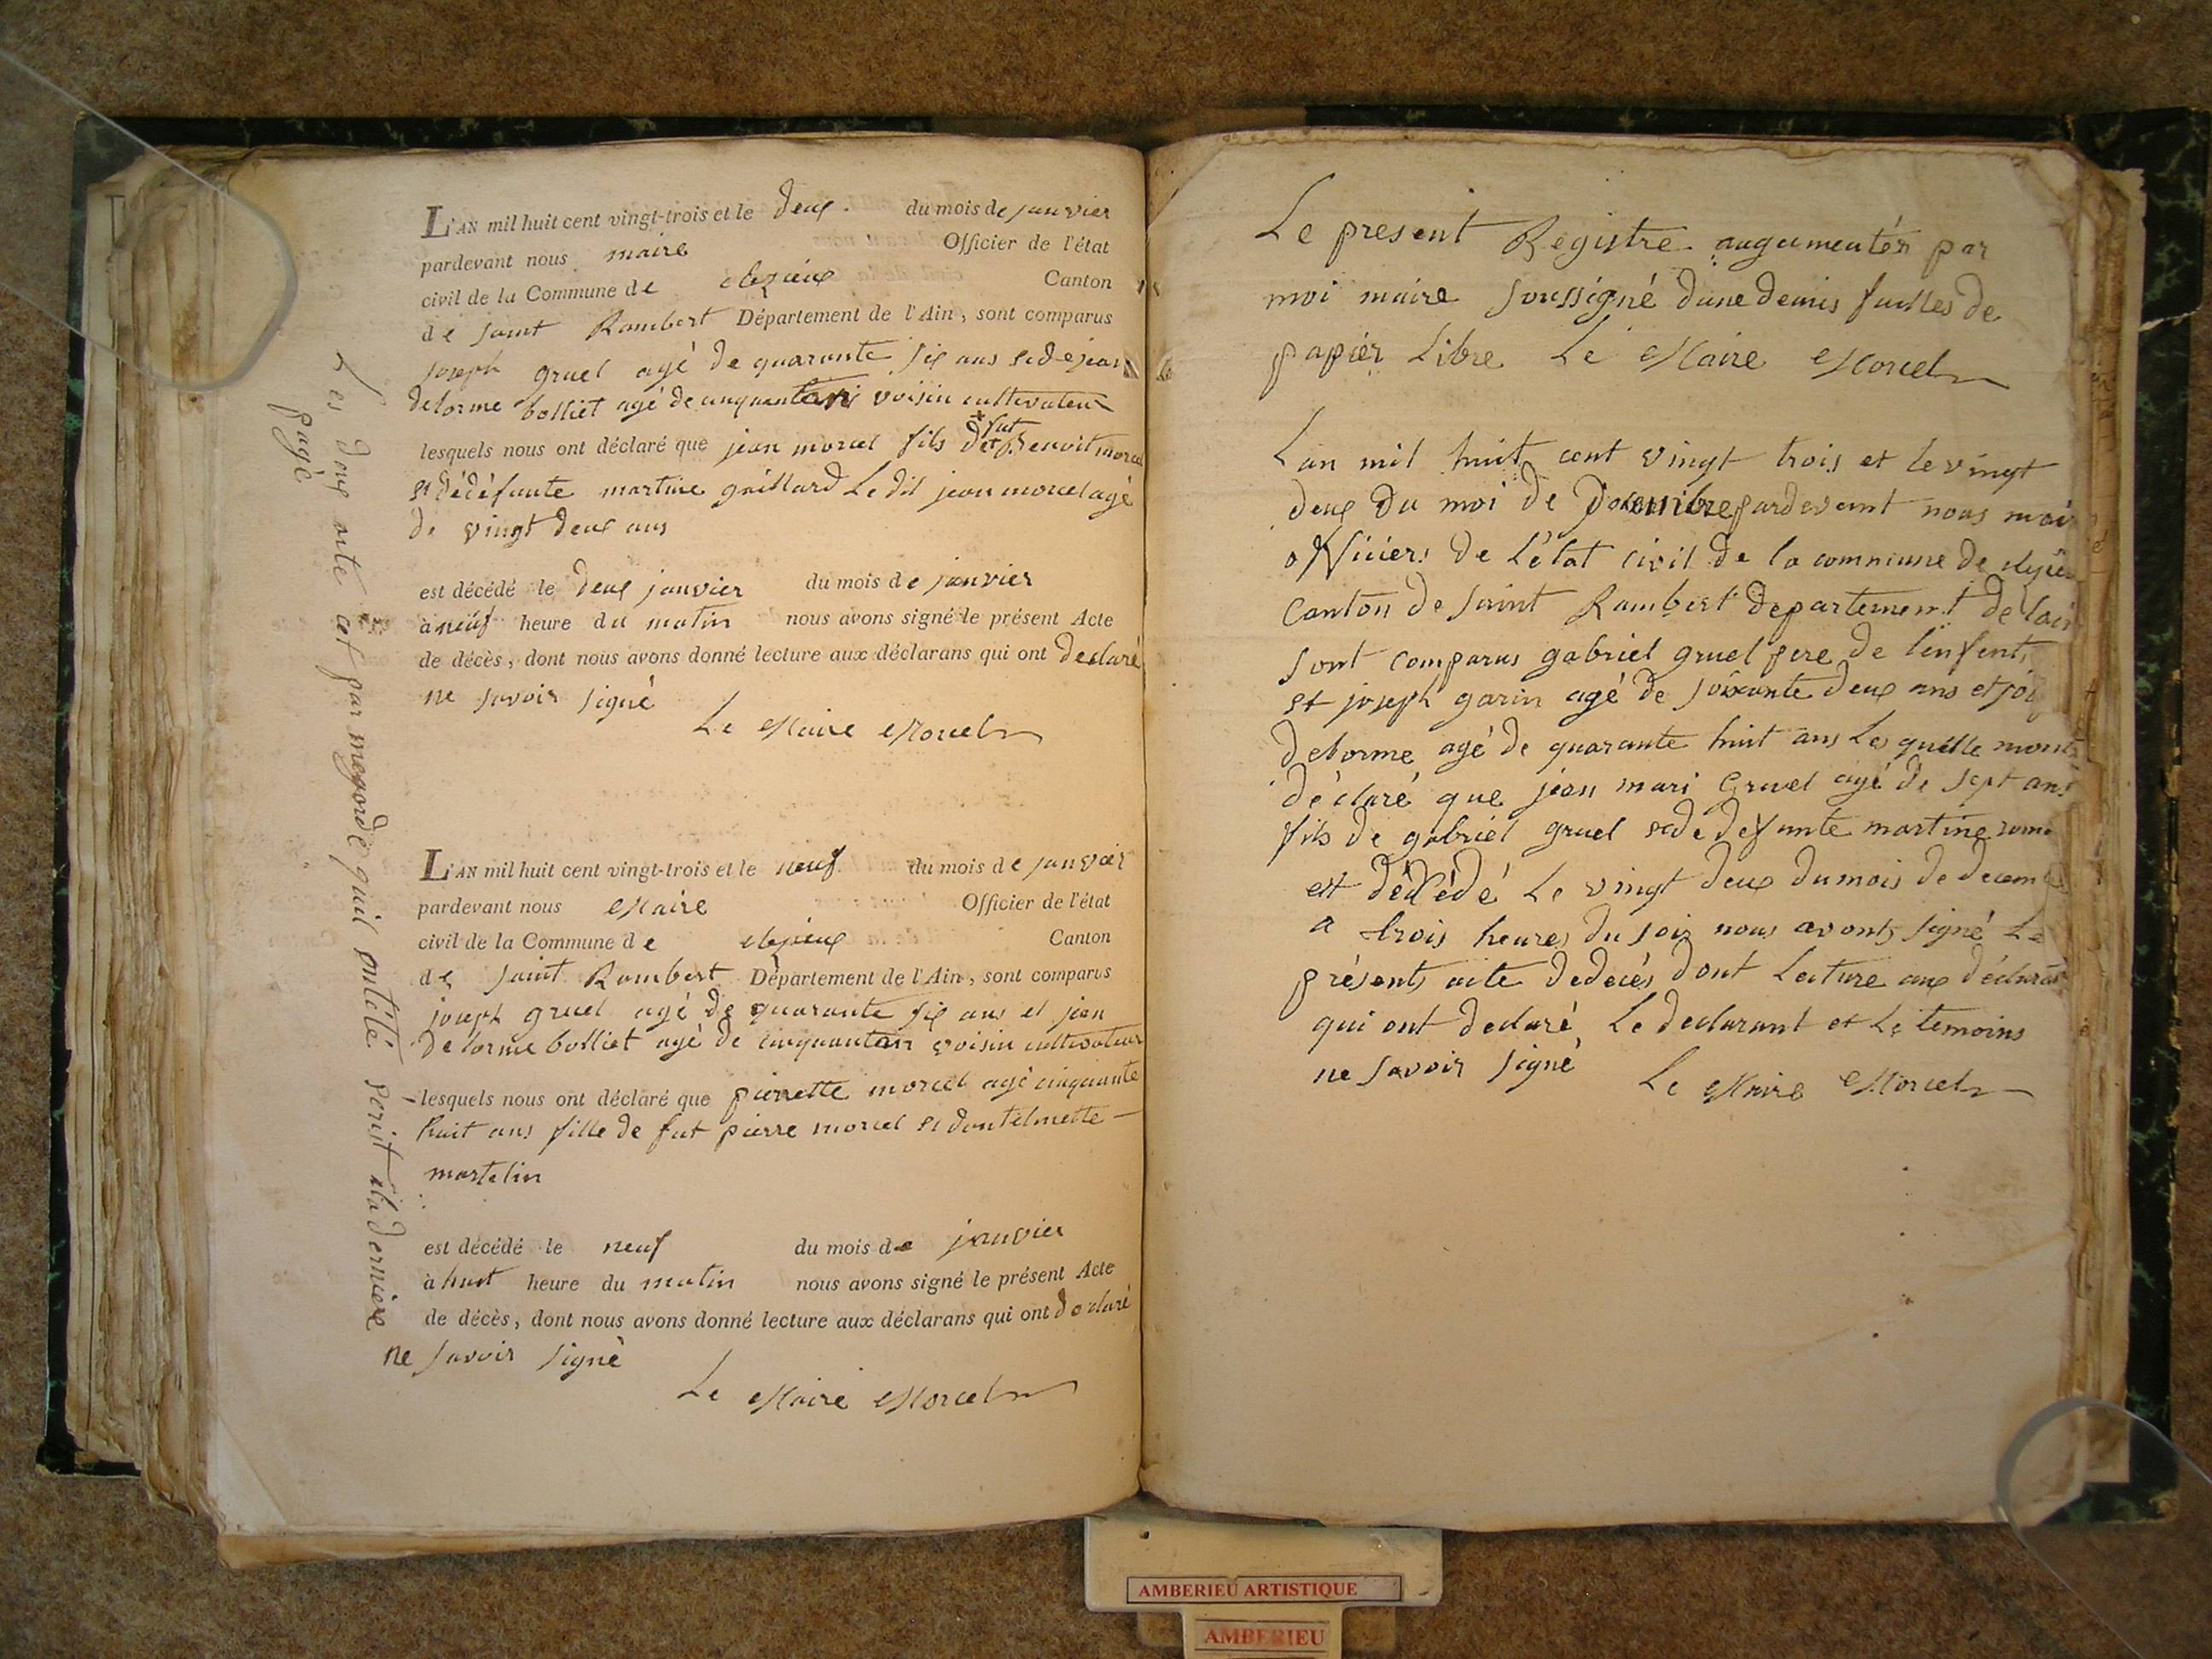 L'AN mil huit cent vingt-trois et le deux du mois de janvier
pardevant nous maire Officier de l'état
civil de la Commune de Canton
de saint Rambert Département de l'Ain, sont comparus
joseph gruel agé de quarante six ans et de jean
delorme bolliet agé de voisin cultivateur
lesquels nous ont déclaré que jean morcel fils de fut Benoit morcel
et dédéfunte martine gaillard Ledit jean morcel agé
de vingt deux ans
est décédé le deux janvier du mois de janvier
à neuf heure du matin nous avons signé le présent Acte
de décès, dont nous avons donné lecture aux déclarans qui ont declaré
ne savoir signé
Le Maire Morcel
L'AN mil huit cent vingt-trois et le neuf du mois de janvier
pardevant nous Maire Officier de l'état
civil de la Commune de Canton
de saint Rambert Département de l'Ain, sont comparus
joseph gruel agé de quarante six ans et jean
delorme bolliet agé de voisin cultivateur
lesquels nous ont déclaré que pierrette morcel agé cinquante
huit ans fille de fut pierre morcel et
martelin
est décédé le neuf du mois de janvier
à huit heure du matin nous avons signé le présent Acte
de décès, dont nous avons donné lecture aux déclarans qui ont declaré
ne savoir signé
Le Maire Morcel
Les deux par megorde quil ont été a la derniere
page
Le present Registre augumentér par
moi maire soussigné dune demis fuilles de
papièr Libre Le Maire Morcel
Lan mil huit cent vingt trois et le vingt
deux du moi de pardevant nous mair
officier de L'état civil de la commune de
canton de saint Rambert departement de lain
sont comparus gabriel gruel pere de lenfent
et joseph garin agé de soixante deux ans et
delorme agé de quarante huit ans Les quelle mont
déclaré que jean mari Gruel agé de sept ans
fils de gabriel gruel et de defunte martine
est décédé Le vingt deux du mois de decembre
a trois heures du soir nous avonts signé Le
présents acte dedecés dont Lecture aux déclarant
qui ont declaré Le declarant et Le temoins
ne savoir signé
Le Maire Morcel
AMBERIEU ARTISTIQUE
AMBERIEU